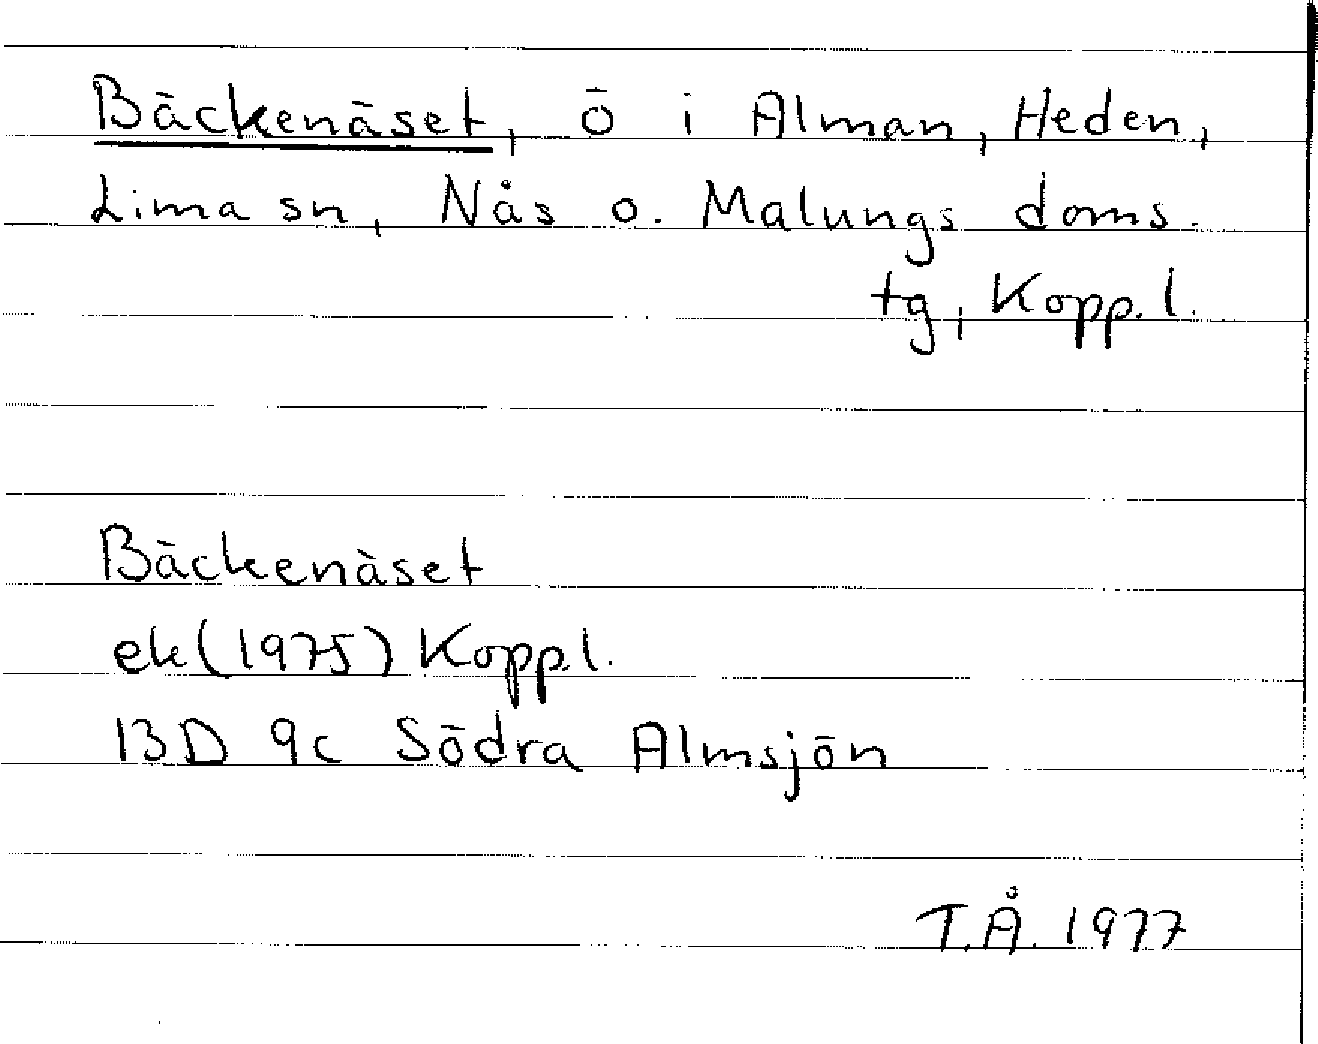 Bäckenäset, ö i Alman, Heden,
Lima sn, Nås o. Malungs doms.
tg, Kopp. l.
Bäckenäset
ek (1975) Kopp.l.
13D 9c Södra Almsjön
T.Å. 1977